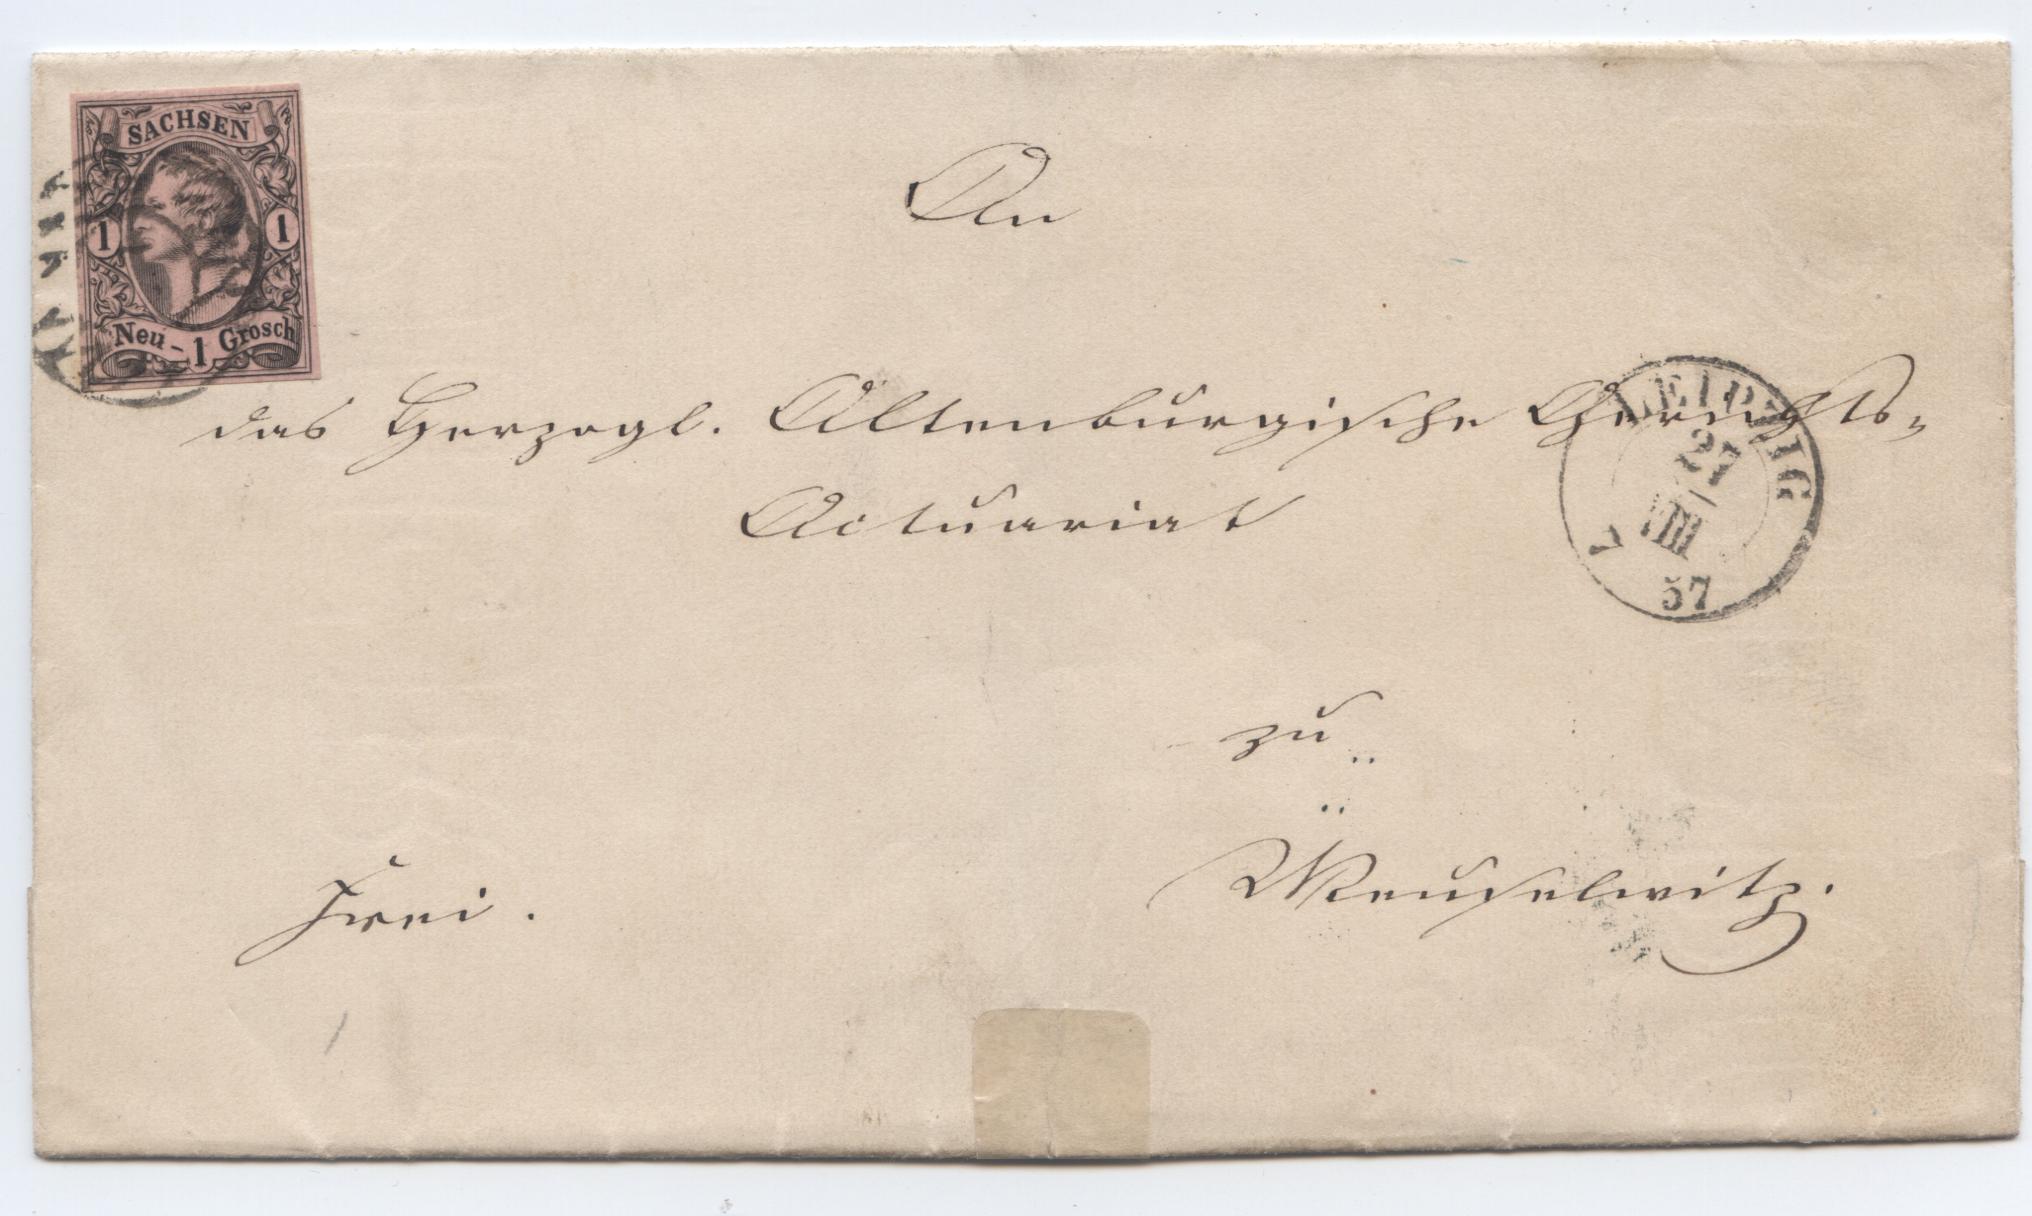 SACHSEN
1 1
Neu - 1 Grosch
An
das Herzogl. Altenburgische Gerichts-
Actuariat
LEIPZIG
21
VIII
57
zu
Meuselwitz.
Frei.